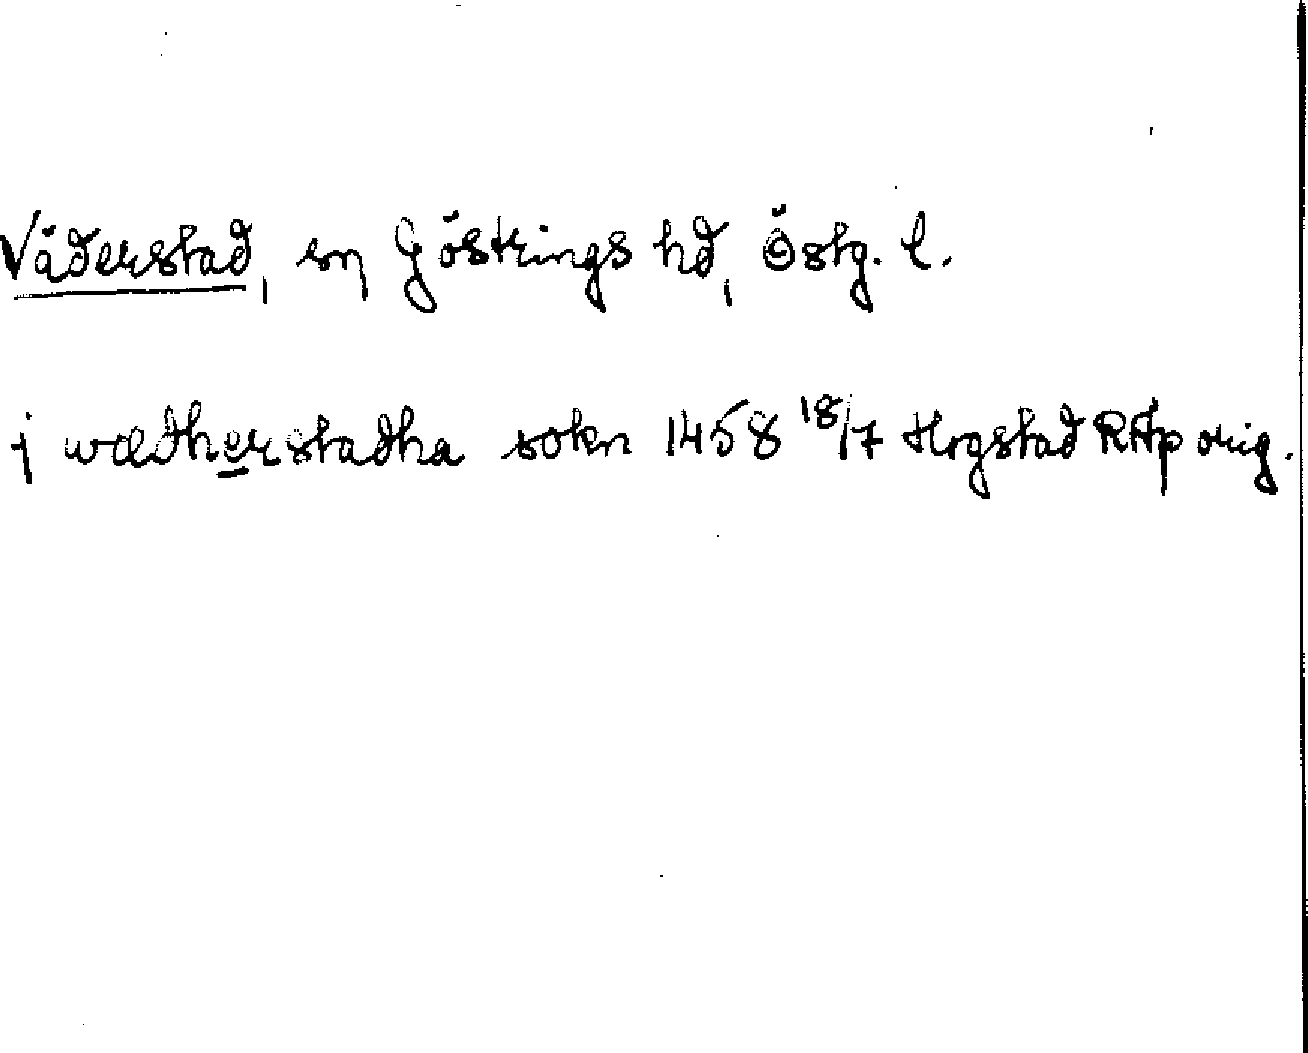 Väderstad, sn Göstrings hd, Östg. l.
j wædherstadha sokn 1458 18/7 Hogstad RAp orig.